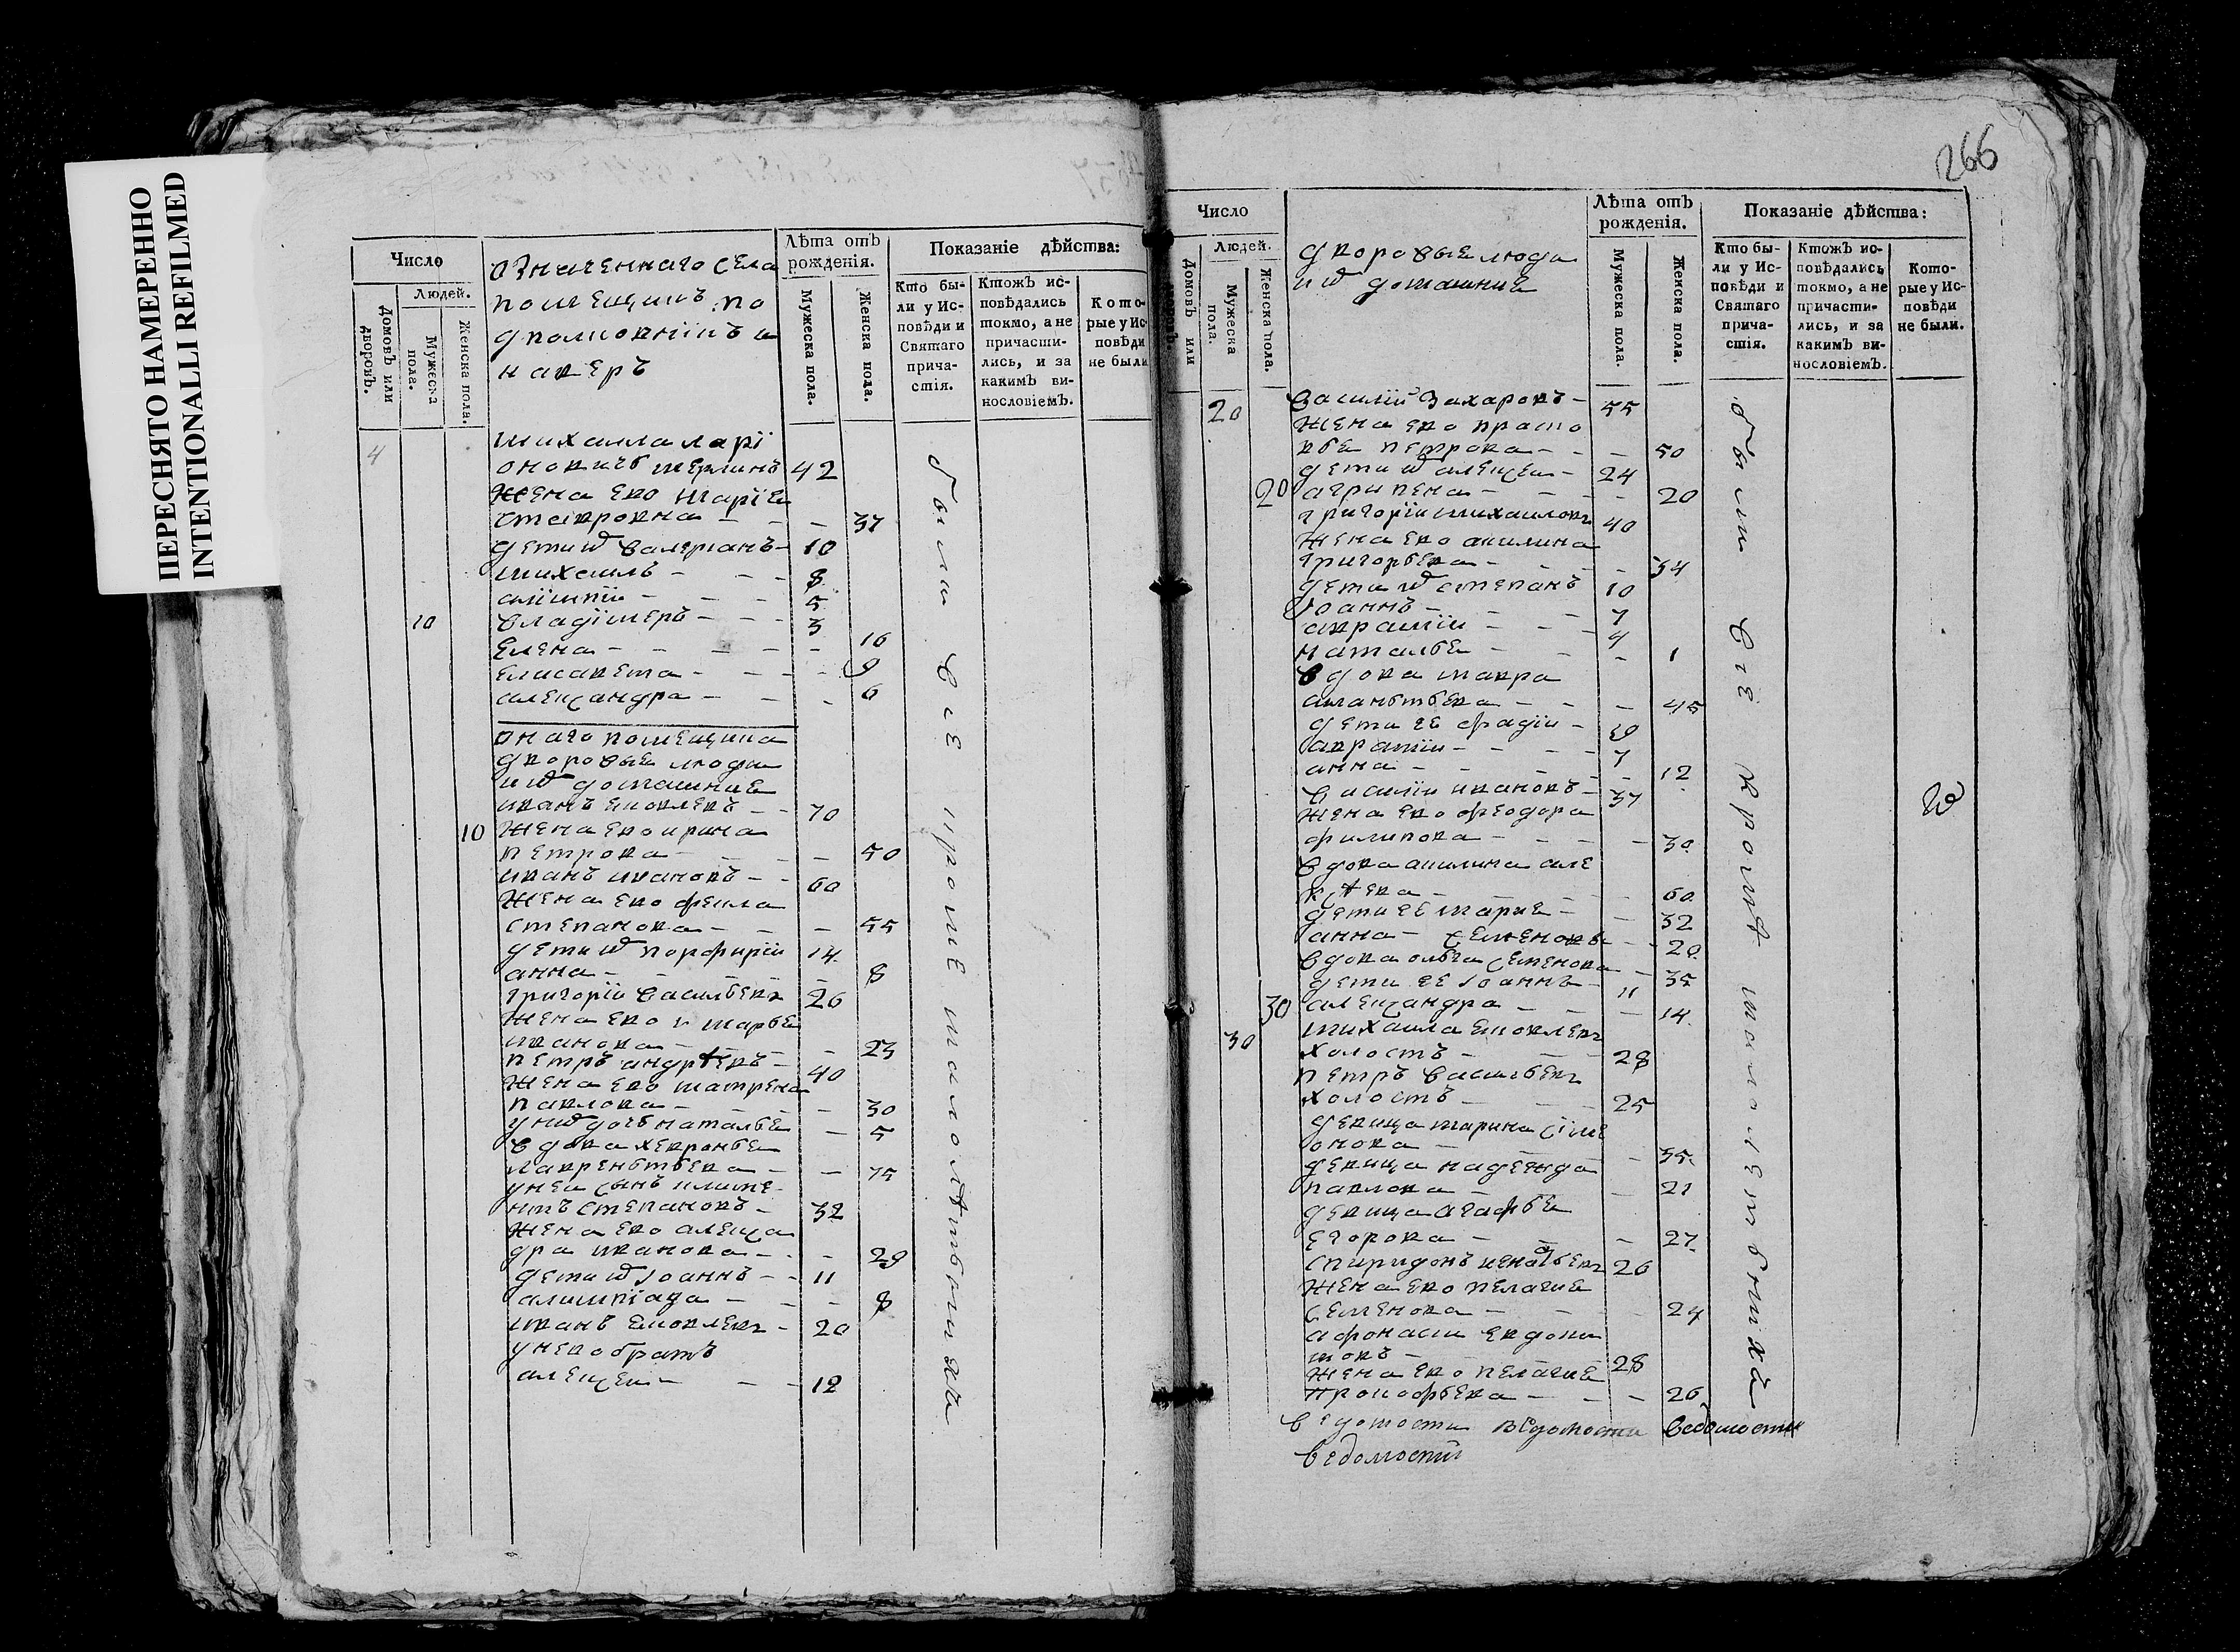 ПЕРЕСНЯТО НАМЕРЕННО
INTENTIONALLI REFILMED
Число
Людей.
Домовъ или дворовъ.
Мужеска пола.
Женска пола.
означеннаго села
помещикъ по
дполковникъ и
кавлеръ
Лѣта отъ рожденія.
Мужеска пола.
Женска пола.
Показаніе дѣйства:
Кто бы-
ли у Ис-
повѣди и
Святаго
прича-
стія.
Ктожъ ис-
повѣдались
токмо, а не
причасти-
лись, и за
какимъ ви-
нословіемъ.
Кото-
рые у Ис-
повѣди
не были
4 михаила ларі
оновичь 42
жена ево маріе
37
дети иѡ валеріанъ - 10
михаилъ - - - 8
алімпіи - - - 5
10 владімеръ - - - 3
елена - - - - - 16
елисавета - - - - 9
александра - - - 6
онаго помещика
дворовые люди
иѡ домашние
иванъ яковлевъ - - 70
10 жена ево ирина
петрова - - - - 50
иванъ ивановъ - - 60
жена ево фекла
степанова - - - 55
дети иѡ порфиріи 14
анна - - - - - 8
григоріи васильевъ 26
жена ево марье
иванова - - - - 23
петръ андрѣевъ - 40
жена ево матрена
павлова - - - - 30
униѡ дочь наталье - 5
вдова хевронье
лаврентьева - - 75
унеи сынъ климе
нтъ степановъ - 32
жена ево алекса
дра иванова - - - 29
дети иѡ іоаннъ - - 11
алимпіада - - - 8
иванъ яковлевъ - 20
унево братъ
алексеи - - - 12
были вси кроме малолѣтныхъ
266
Число
Людей.
Домовъ или
Мужеска пола.
Женска пола.
дворовые люди
иѡ домашние
Лѣта отъ рожденія.
Мужеска пола.
Женска пола.
Показаніе дѣйства:
Кто бы-
ли у Ис-
повѣди и
Святаго
прича-
стія.
Ктожъ ис-
повѣдались
токмо, а не
причасти-
лись, и за
какимъ ви-
нословіемъ.
Кото-
рые у Ис-
повѣди
не были.
20 василіи захаровъ - 55
жена ево праско
вье петрова - - - 50
дети иѡ алексеи - 24
20 агрипена - - - - 20
григоріи михаиловъ 40
жена ево акилина
григорьева - - - 34
дети иѡ степанъ 10
іоаннъ - - - 7
авраміи - - - 4
наталье - - - 1
вдова мавра
45
дети ее - 19
авраміи - - - - 7
анна - - - - - 12
василіи ивановъ - 37
жена ево феодора
филипова - - - 30
вдова акилина але
ксѣева - - - - 60
дети ее марие - - 32
анна - семенова - - 20
вдова ольга семенова - 35
дети ее іоаннъ - 11
30 александра - - - 14
30 михаила яковлевъ
холостъ - - - 28
петръ василъевъ
холостъ - - - 25
девица марина сіме
онова - - - 35
девица надежда
павлова - - - 21
девица агафье
егорова - - - 27
спиридонъ 26
жена ево пелагие
семенова - - - 24
афонасіи евдоки
мовъ - - - 28
жена ево пелагие
прокофьева - - - 26
были вси кромѣ малолетныхъ
ведомости ведомости ведомости
ведомости